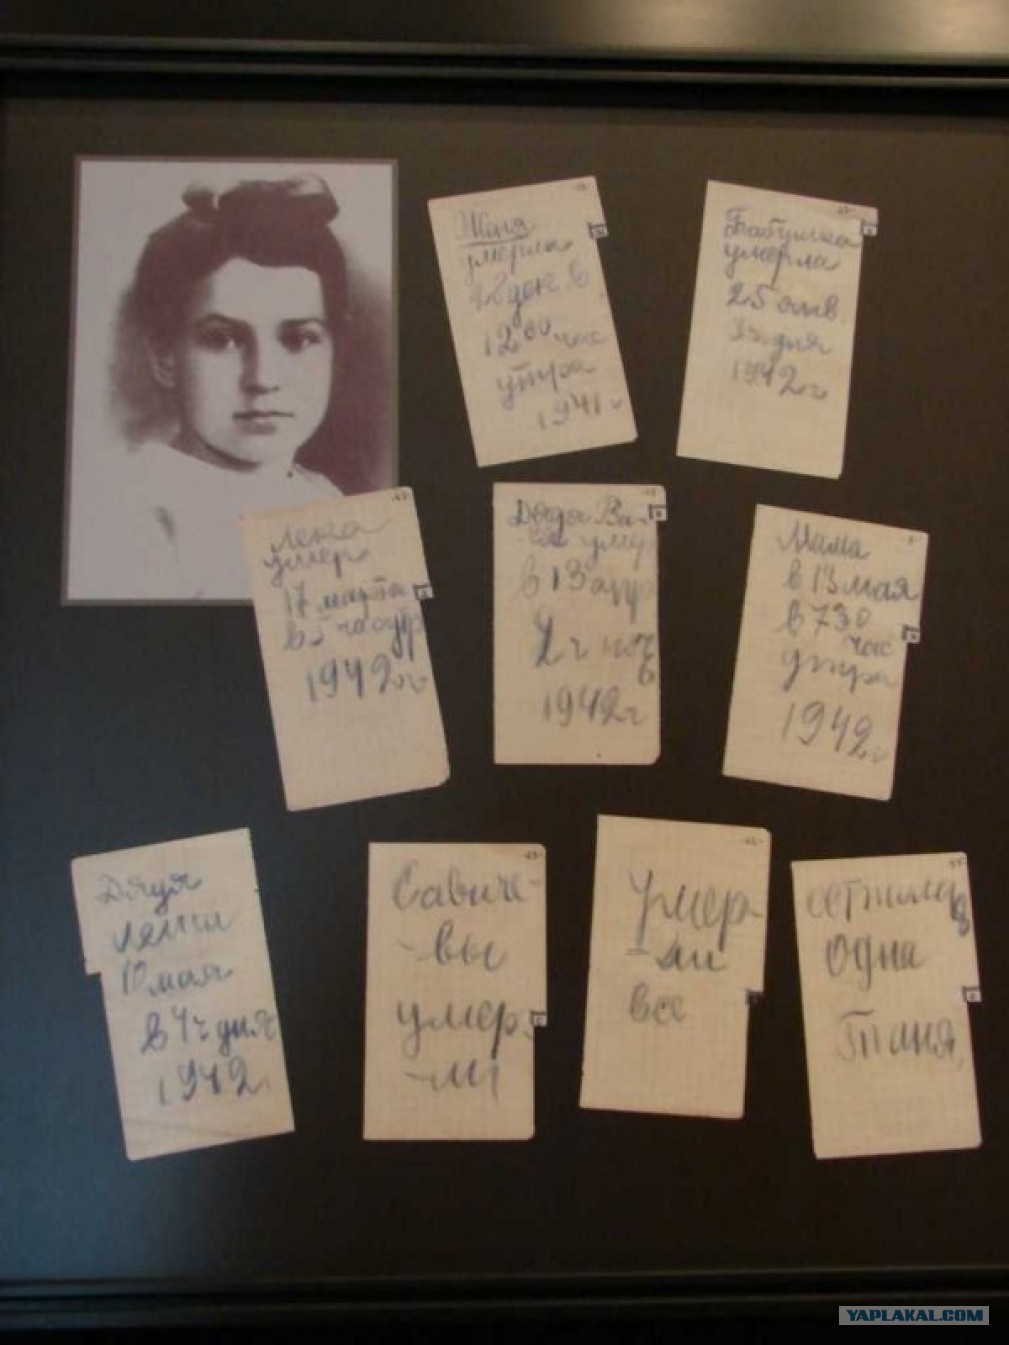 Женя
умерла
28 дек. в
12 00 час
утра
1941 г
Бабушка
умерла
25 янв.
3 ч. дня
1942 г.
Лека
умер
17 марта
в 5 часутр
1942 г.
Дядя Ва
ся умер
в 13 апр
2 ч ноч
ь
1942 г
Мама
в 13 мая
в 7 30
час
утра
1942 г
Дядя
Леша
10 мая
в 4 ч дня
1942
Савиче-
-вы
умер
-ли
Умер
-ли
все
одна
Таня
YAPLAKAL.COM